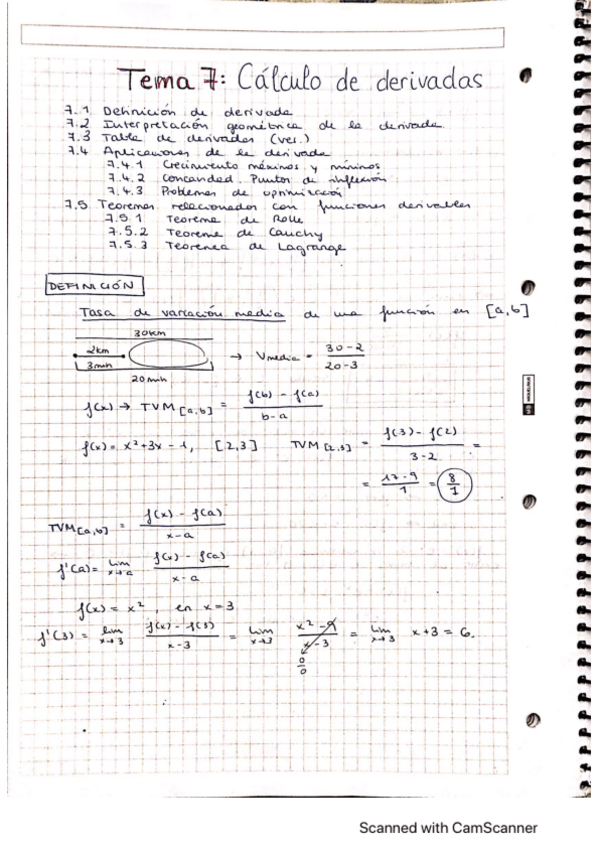 Tema 7: Cálculo de derivadas
7.1 Definición de derivada
7.2 Interpretación geométrica de la derivada.
7.3 Tabla de derivadas (ver.)
7.4 Aplicaciones de la derivada
7.4.1 Crecimiento máximos y mínimos
7.4.2 Concavidad. Puntos de inflexión
7.4.3 Problemas de optimización
7.5 Teoremas relacionados con funciones derivables
7.5.1 Teorema de Rolle
7.5.2 Teorema de Cauchy
7.5.3 Teorema de Lagrange
DEFINICIÓN
Tasa de variación media de una función en [a,b]
30km
2km
3min
20min
→ Vmedia = (30-2)/(20-3)
f(x) → TVM[a,b] = (f(b) - f(a))/(b-a)
f(x) = x²+3x-1, [2,3] TVM[2,3] = (f(3) - f(2))/(3-2) =
= (17-9)/1 = 8/1
TVM[a,b] = (f(x) - f(a))/(x-a)
f'(a) = lim x→a (f(x) - f(a))/(x-a)
f(x) = x², en x=3
f'(3) = lim x→3 (f(x) - f(3))/(x-3) = lim x→3 (x²-9)/(x-3) = lim x→3 x+3 = 6.
0/0
Scanned with CamScanner